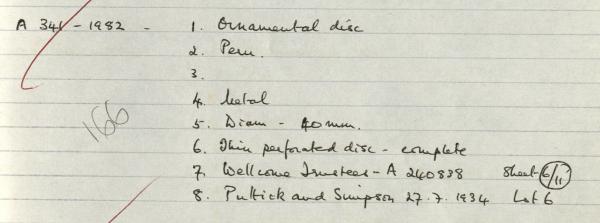 A 341 - 1982 - 1. Ornamental disc
2. Peru.
3.
4. Metal
5. Diam - 40 mm.
6. Thin perforated disc - complete
7. Wellcome Trustees - A 240838 Sheet 6/11
8. Puttick and Simpson 27.7.1934 Lot 6
166